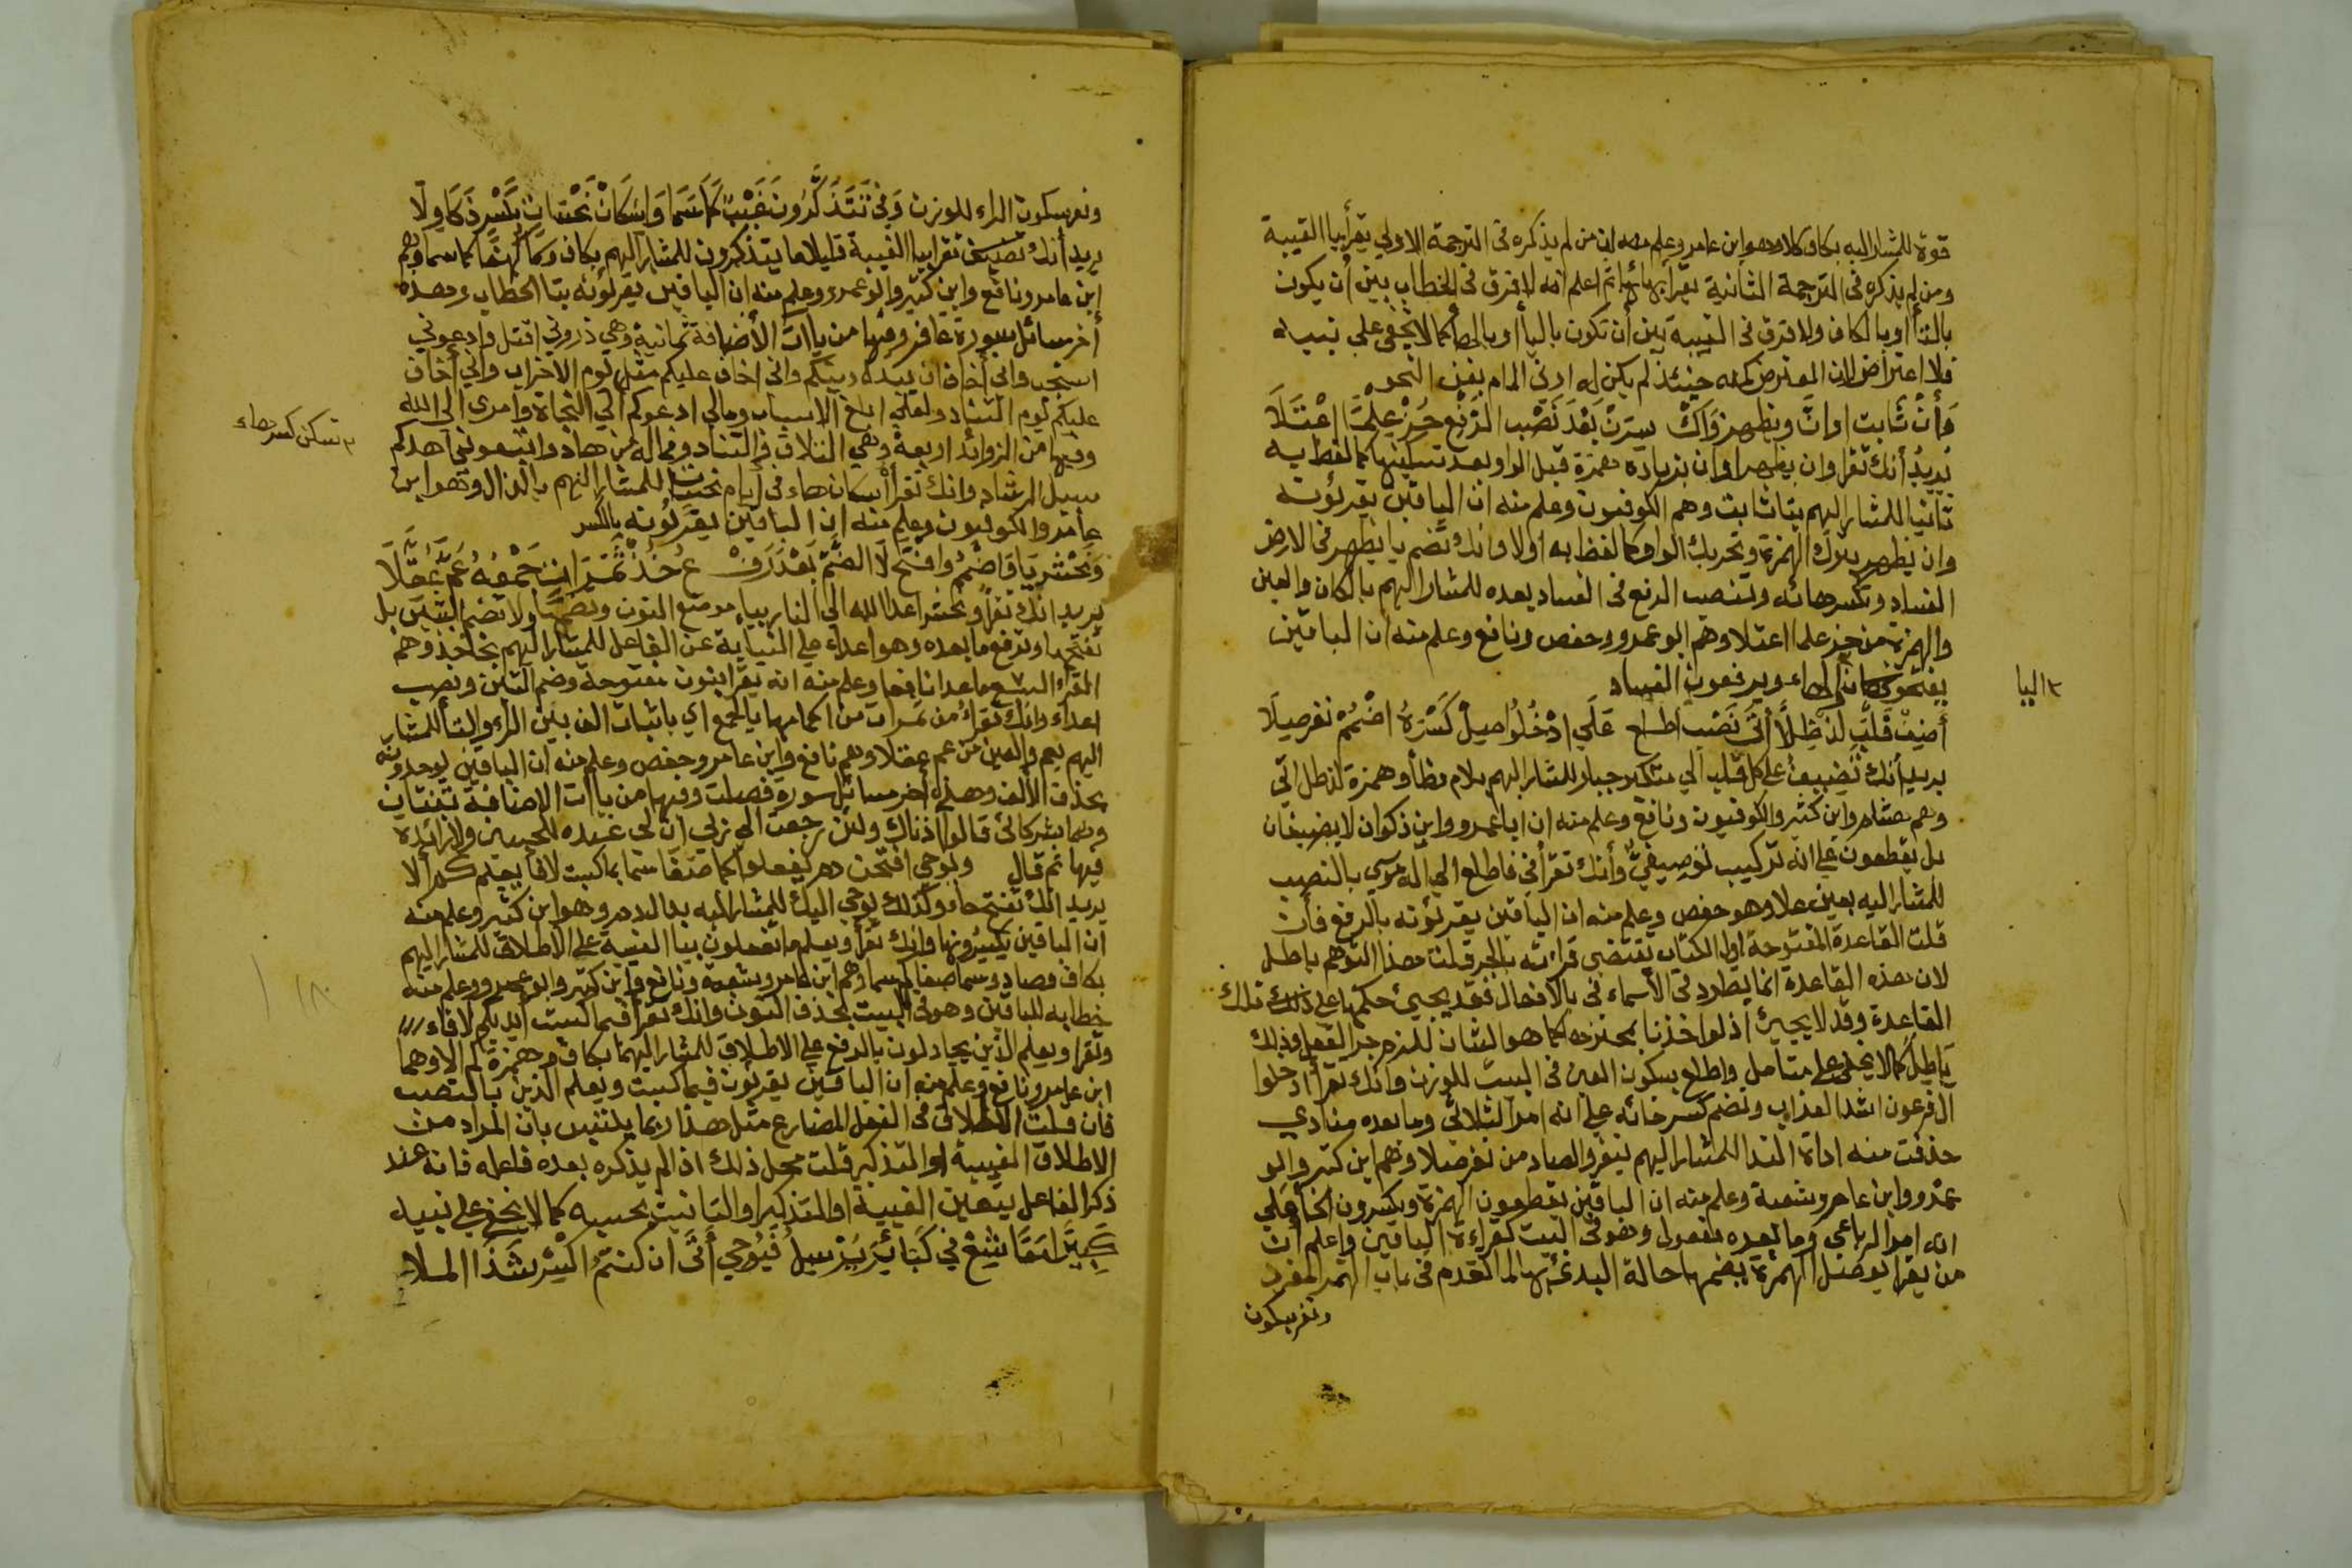 قوة للمشار اليه بكاف كلا وهو ابن عامر وعلم منه ان من لم يذكره في الترجمة الاولي يقرأ بيا الغيبة
ومن لم يذكره في الترجمة الثانية يقرأ بهائها ثم اعلم انه لا فرق في الخطاب بين أن يكون
بالتاأ او بالكاف ولا فرق في الغيبة بين أن تكون بالياأ او بالهاأ كما لا يخفى علي نبيه
فلا اعتراض لان المعترض كأنه حينئذ لم يكن له ادني المام بفن النحو
وأن ثابت اوان ويظهر واك سرن بعد نصب الرفع حز علما اعتلا
يريد أنك تقرأ وان يظهر اوان بزيادة همزة قبل الواو بعد تسكينها كما لفظ به
ثانيا للمشار اليهم بثا ثابت وهم الكوفيون وعلم منه ان الباقين يقرئونه
وان يظهر بترك الهمزة وتحريك الواو كما لفظ به اولا وانك تضم يا يظهر في الارض
الفساد وتكسر هائه وتنصب الرفع في الفساد بعده للمشار اليهم بالحاء والعين
والهمزة من حز علما اعتلا وهم ابو عمرو وحفص ونافع وعلم منه ان الباقين
يفتحون الياء والهاء ويرفعون الفساد
٢ اليا
أضيف قلب لذ ظلا أتى نصب اطلع علي ادخلوا صل كسرة اضمم نفر صلا
يريد أنك تضيف علي كل قلب الي متكبر جبار للمشار اليهم بلام وظأ وهمزة لذ ظلا اتي
وهم هشام وابن كثير والكوفيون ونافع وعلم منه ان ابا عمرو وابن ذكوان لا يضيفان
بل يقطعون علي انه تركيب توصيفي وأنك تقرأ في فاطلع الي اله موسي بالنصب
للمشار اليه بعين علا وهو حفص وعلم منه ان الباقين يقرئونه بالرفع فأن
قلت القاعدة المفتوحة اول الكتاب تقتضى قرائته بالجر قلت هذا التوهم باطل
لان هذه القاعدة انما يطرد في الأسماء في بالافعال فقد يجيئ حكمها علي ذلك تلك
القاعدة وقد لا يجيئ اذ لو اخذنا بمحترزه كما هو الشان للزم جر الفعل وذلك
باطل كما لا يخفى علي متامل واطلع بسكون العين في البيت للوزن وانك تقرأ ادخلوا
ال فرعون اشد العذاب وتضم كسر خائه علي انه امر الثلاثي وما بعده منادي
حذفت منه اداة الندا للمشار اليهم بنفر والصاد من نفر صلا وهم ابن كثير وابو
عمرو وابن عامر وشعبة وعلم منه ان الباقين يقطعون الهمزة ويكسرون الخاء علي
انه امر الرباعي وما بعده مفعول وهو في البيت كقراءة الباقين واعلم أن
من يقرأ بوصل الهمزة يضمها حالة البدئ بها لما تقدم في باب الهمز المفرد
ونفر بسكون
ونفر بسكون الراء للوزن وفي تتذكرون غيب كما سما واسكان نحسات بكسر ذكا ولا
يريد أنك تضيف تقرأ بيا الغيبة قليلا ما يتذكرون للمشار اليهم بكاف وسما كهفا كما سما وهم
ابن عامر ونافع وابن كثير وابو عمرو وعلم منه ان الباقين يقرئونه بتا الخطاب وهذه
أخر مسائل سورة غافر وفيها من ياات الأضافة ثمانية وهي ذروني اقتل وادعوني
استجب واني أخاف ان يبدل دينكم واني اخاف عليكم مثل يوم الاحزاب واني أخاف
عليكم يوم التناد ولعلي ابلغ الاسباب ومالي ادعوكم الي النجاة وامري الي الله
وفيها من الزوائد اربعة وهي التلاق والتناد وفماله من هاد واتبعوني اهدكم
٢ تسكن كسر حاء
سبيل الرشاد وانك تقرأ اسكان حاء في ايام نحسات للمشار اليهم بالذال وهو ابن
عامر والكوفيون وعلم منه ان الباقين يقرئونه بالكسر
ونحشر يا فاضمم وافتح لا الضم بعد رفع خذ ثمرات جمعه عم عقلا
يريد انك تقرأ ويحشر اعداالله الي النار بياء موضع النون وتضمها ولا تضم الشين بل
تفتحها وترفع ما بعده وهو اعداء علي النيابة عن الفاعل للمشار اليهم بخا خذ وهم
القراء السبع ما عدا نافعا وعلم منه انه يقرأ بنون مفتوحة وضم الشين ونصب
اعداء وانك تقرأ من ثمرات من اكمامها بالجمع اي باثبات الف بين الراء والتأ للمشار
اليهم بعم والعين من عم عقلا وهم نافع وابن عامر وحفص وعلم منه ان الباقين يوحدونه
بحذف الألف وهذه أخر مسائل سورة فصلت وفيها من ياات الاضافة ثنتان
وهما شركائي قالوا اذناك ولئن رجعت الي ربي ان لي عنده للحسنى ولا زائدة
فيها ثم قال ويوحي افتحن دم يفعلوا كما صفا سما بما كسبت لا فا يعلم كم ألا
يريد انك تفتح حاء وكذلك يوحي اليك للمشار اليه بدال دم وهو ابن كثير وعلم منه
ان الباقين يكسرونها وانك تقرأ ويعلم ما تفعلون بيا الغيبة علي الاطلاق للمشار اليهم
بكاف وصاد وسما صفا كم سما وهم ابن عامر وشعبة ونافع وابن كثير وابو عمرو وعلم منه
خطابه للباقين وهو في البيت بحذف النون وانك تقرأ فبما كسبت أيديكم لا فاء
وتقرا ويعلم الذين يجادلون بالرفع علي الاطلاق للمشار اليهما بكاف وهمزة كم الا وهما
ابن عامر ونافع وعلم منه ان الباقين يقرئون فبما كسبت ويعلم الذين بالنصب
فان قلت الاطلاق في الفعل المضارع مثل هذا ربما يلتبس بان المراد من
الاطلاق الغيبة او التذكير قلت محل ذلك اذا لم يذكره بعده فاعله فانه عند
ذكر الفاعل يتعين الغيبة او التذكير او التانيث بحسبه كما لا يخفى علي نبيه
كبير امعا شيع في كبائر يرسل فيوحي أتى ان كنتم اكسر شذا الملا